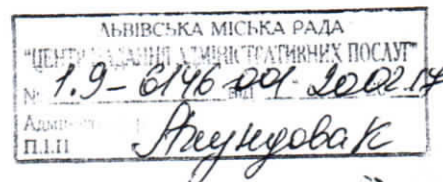 ЛЬВІВСЬКА МІСЬКА РАДА
"ЦЕНТР НАДАННЯ АДМІНІСТРАТИВНИХ ПОСЛУГ"
№ 1.9-6146-001 від 20.02.17
П.І.П